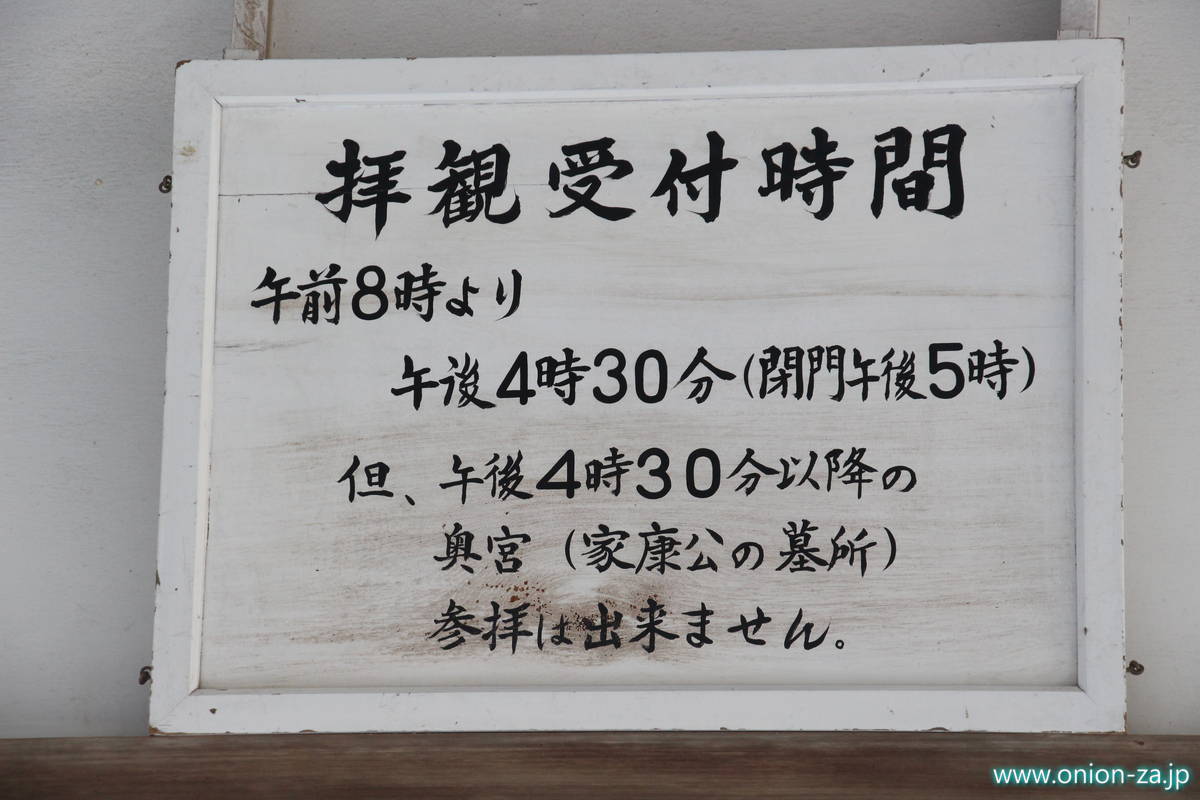 拝観受付時間
午前8時より
午後4時30分(閉門午後5時)
但、午後4時30分以降の
奥宮(家康公の墓所)
参拝は出来ません。
www.onion-za.jp